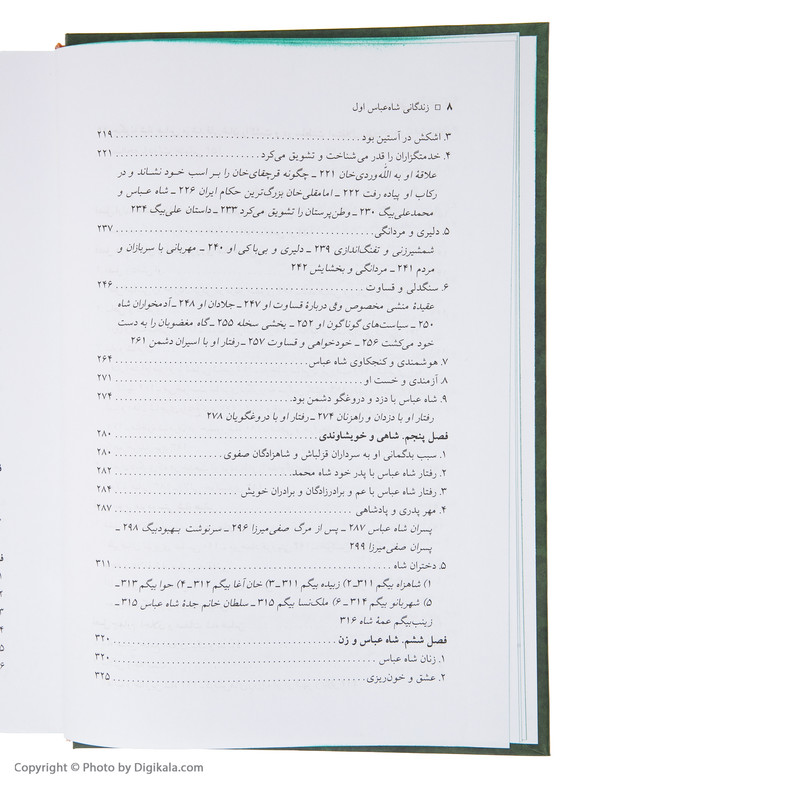 ۸ □ زندگانی شاه‌عباس اول
۳. اشکش در آستین بود ۲۱۹
۴. خدمتگزاران را قدر می‌شناخت و تشویق می‌کرد ۲۲۱
علاقهٔ او به الله‌وردی‌خان ۲۲۱ ـ چگونه قرچقای‌خان را بر اسب خود نشاند و در
رکاب او پیاده رفت ۲۲۲ ـ امامقلی‌خان بزرگ‌ترین حکام ایران ۲۲۶ ـ شاه عباس و
محمدعلی‌بیگ ۲۳۰ ـ وطن‌پرستان را تشویق می‌کرد ۲۳۳ ـ داستان علی‌بیگ ۲۳۴
۵. دلیری و مردانگی ۲۳۷
شمشیرزنی و تفنگ‌اندازی ۲۳۹ ـ دلیری و بی‌باکی او ۲۴۰ ـ مهربانی با سربازان و
مردم ۲۴۱ ـ مردانگی و بخشایش ۲۴۲
۶. سنگدلی و قساوت ۲۴۶
عقیدهٔ منشی مخصوص وی دربارهٔ قساوت او ۲۴۷ ـ جلادان او ۲۴۸ ـ آدمخواران شاه
۲۵۰ ـ سیاست‌های گوناگون او ۲۵۲ ـ یخشی سخله ۲۵۵ ـ گاه مغضوبان را به دست
خود می‌کشت ۲۵۶ ـ خودخواهی و قساوت ۲۵۷ ـ رفتار او با اسیران دشمن ۲۶۱
۷. هوشمندی و کنجکاوی شاه عباس ۲۶۴
۸. آزمندی و خست او ۲۷۱
۹. شاه عباس با دزد و دروغگو دشمن بود ۲۷۴
رفتار او با دزدان و راهزنان ۲۷۴ ـ رفتار او با دروغگویان ۲۷۸
فصل پنجم. شاهی و خویشاوندی ۲۸۰
۱. سبب بدگمانی او به سرداران قزلباش و شاهزادگان صفوی ۲۸۰
۲. رفتار شاه عباس با پدر خود شاه محمد ۲۸۲
۳. رفتار شاه عباس با عم و برادرزادگان و برادران خویش ۲۸۴
۴. مهر پدری و پادشاهی ۲۸۷
پسران شاه عباس ۲۸۷ ـ پس از مرگ صفی‌میرزا ۲۹۶ ـ سرنوشت بهبودبیگ ۲۹۸ ـ
پسران صفی‌میرزا ۲۹۹
۵. دختران شاه ۳۱۱
۱) شاهزاه بیگم ۳۱۱ـ۲) زبیده بیگم ۳۱۱ ـ۳) خان آغا بیگم ۳۱۲ـ ۴) حوا بیگم ۳۱۳ـ
۵) شهربانو بیگم ۳۱۴ ـ ۶) ملک‌نسا بیگم ۳۱۵ ـ سلطان خانم جدهٔ شاه عباس ۳۱۵ ـ
زینب‌بیگم عمهٔ شاه ۳۱۶
فصل ششم. شاه عباس و زن ۳۲۰
۱. زنان شاه عباس ۳۲۰
۲. عشق و خون‌ریزی ۳۲۵
Copyright © Photo by Digikala.com